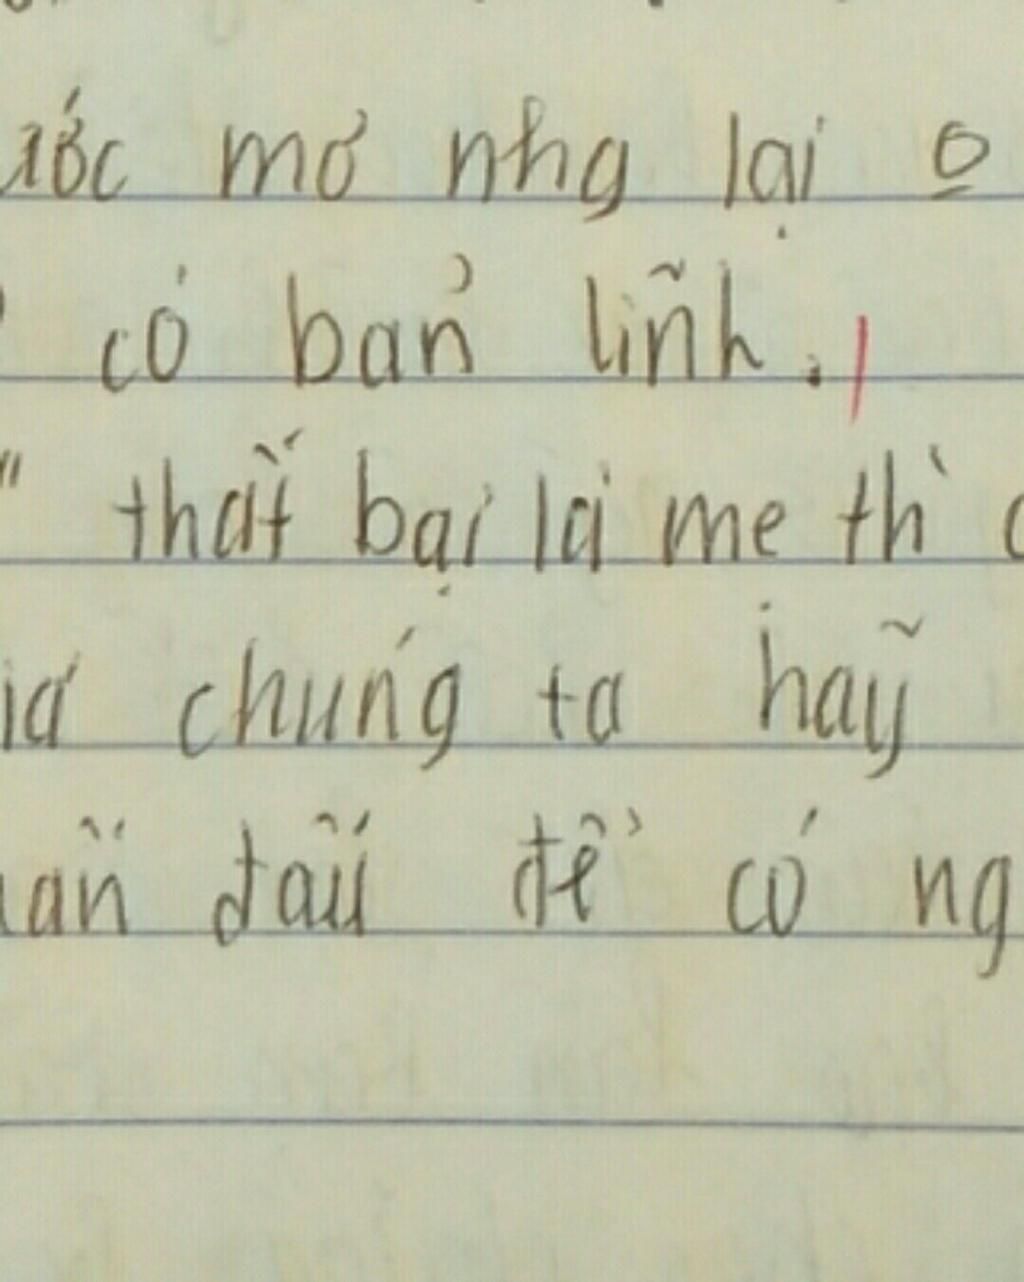 ước mơ nhg lại o
có bản lĩnh.
" thất bại là mẹ thì
chúng ta hãy
đấu để có ng